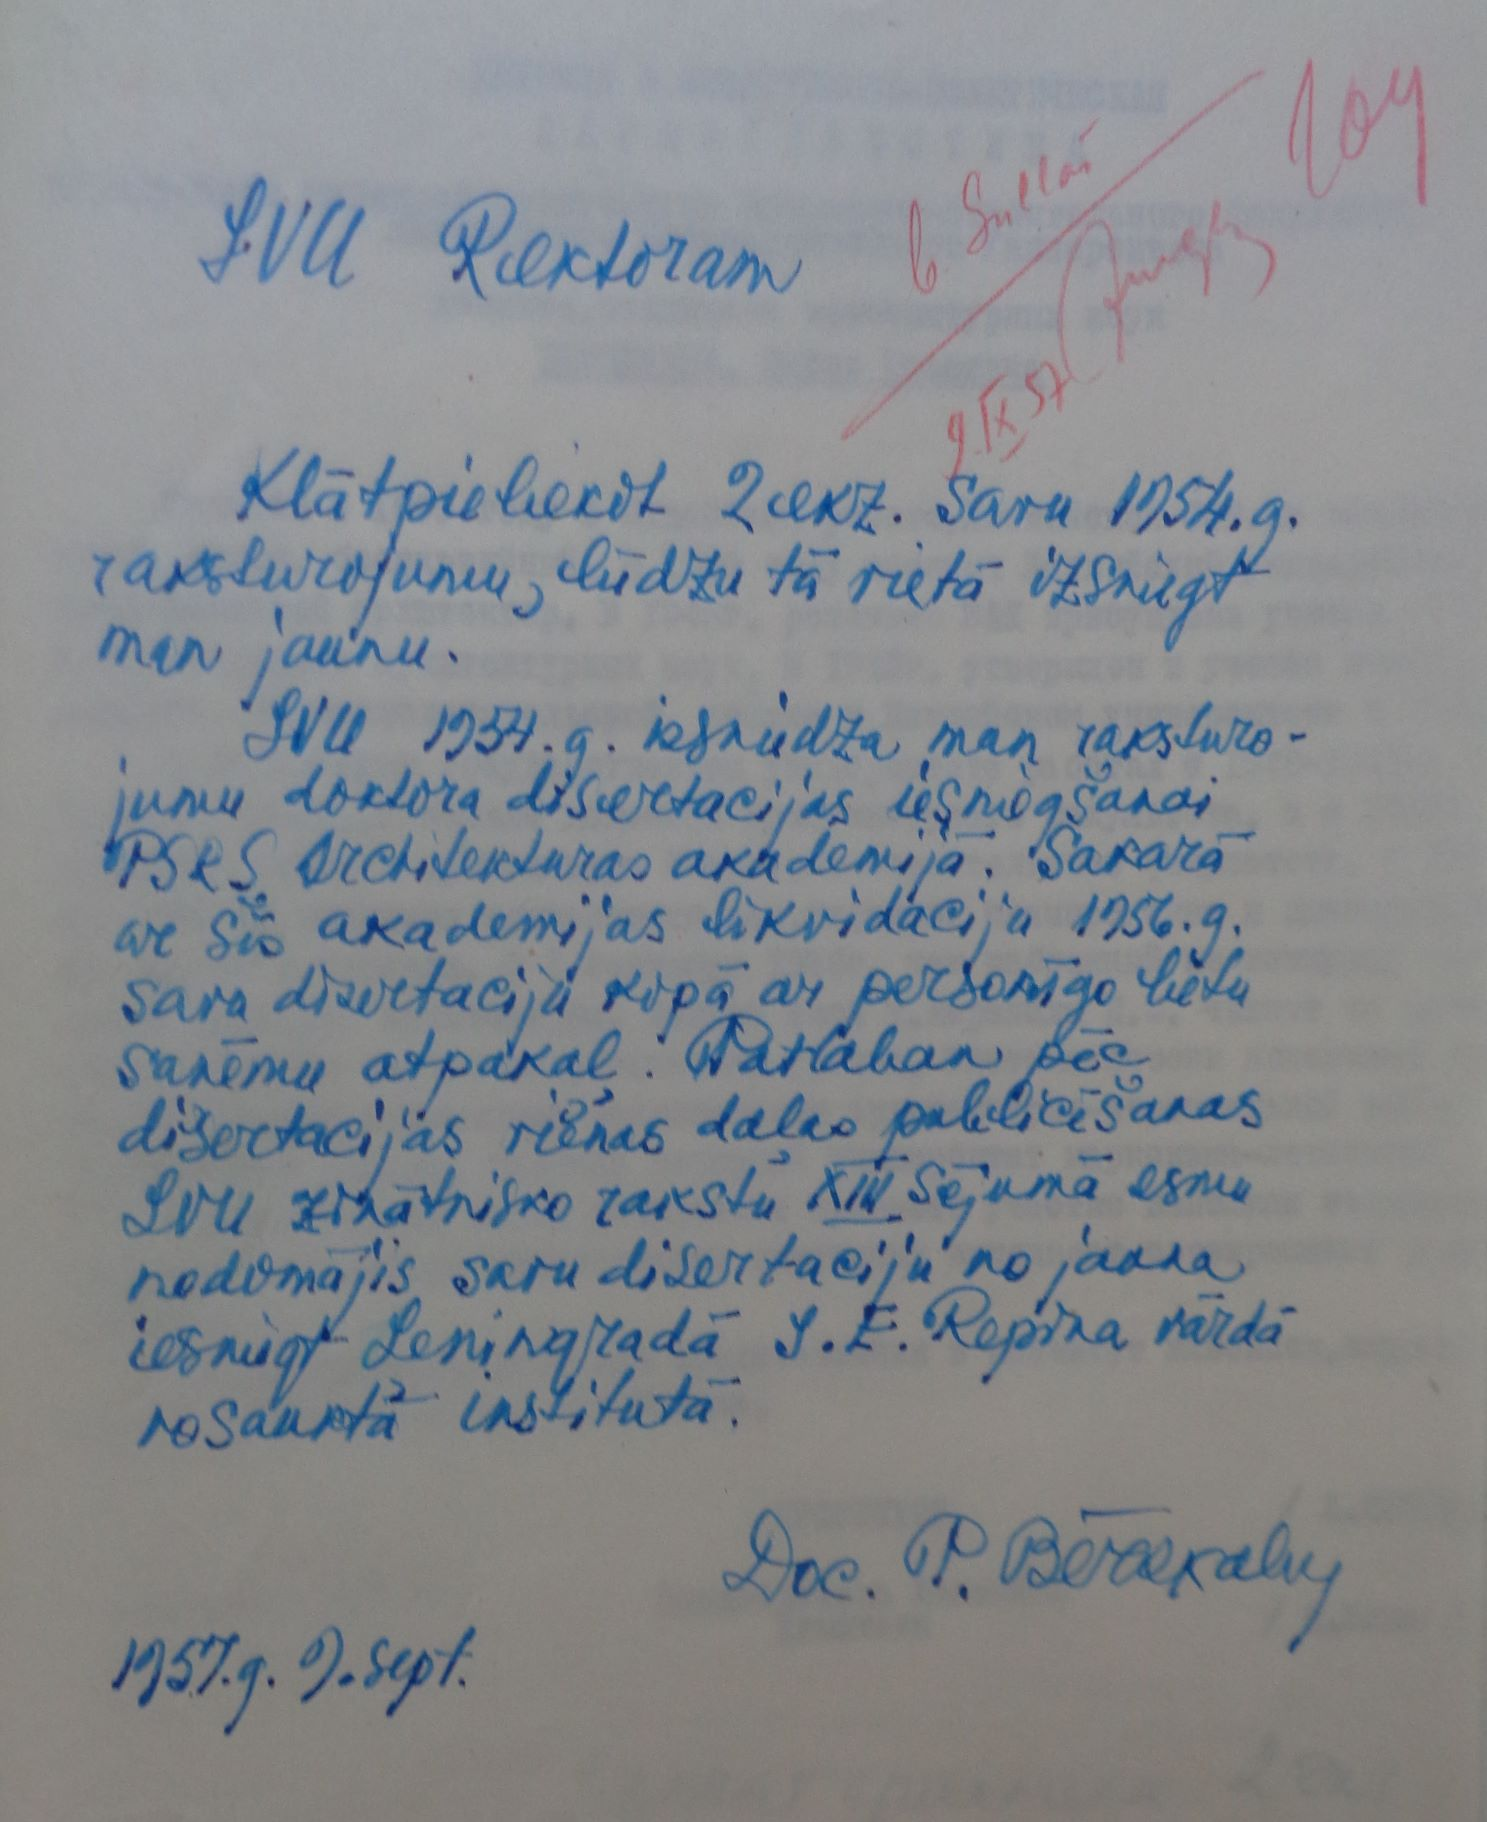 LVU Rektoram
104
9 IX 57
Klātpieliekot 2 ekz. savu 1954.g.
raksturojumu, lūdzu tā vietā izsniegt
man jaunu.
LVU 1954.g. izsniedza man raksturo-
jumu doktora disertacijas iesniegšanai
PSRS Architekturas akadēmijā. Sakarā
ar šīs akademijas likvidaciju 1956.g.
savu disertaciju kopā ar personīgo lietu
saņēmu atpakaļ. Patlaban pēc
disertacijas vienas daļas publicēšanas
LVU zinātnisko rakstu XIII sējumā esmu
nodomājis savu disertaciju no jauna
iesniegt Leningradā I.E. Repina vārdā
nosauktā institutā.
Doc. P. Bērzkalns
1957.g. 9. sept.